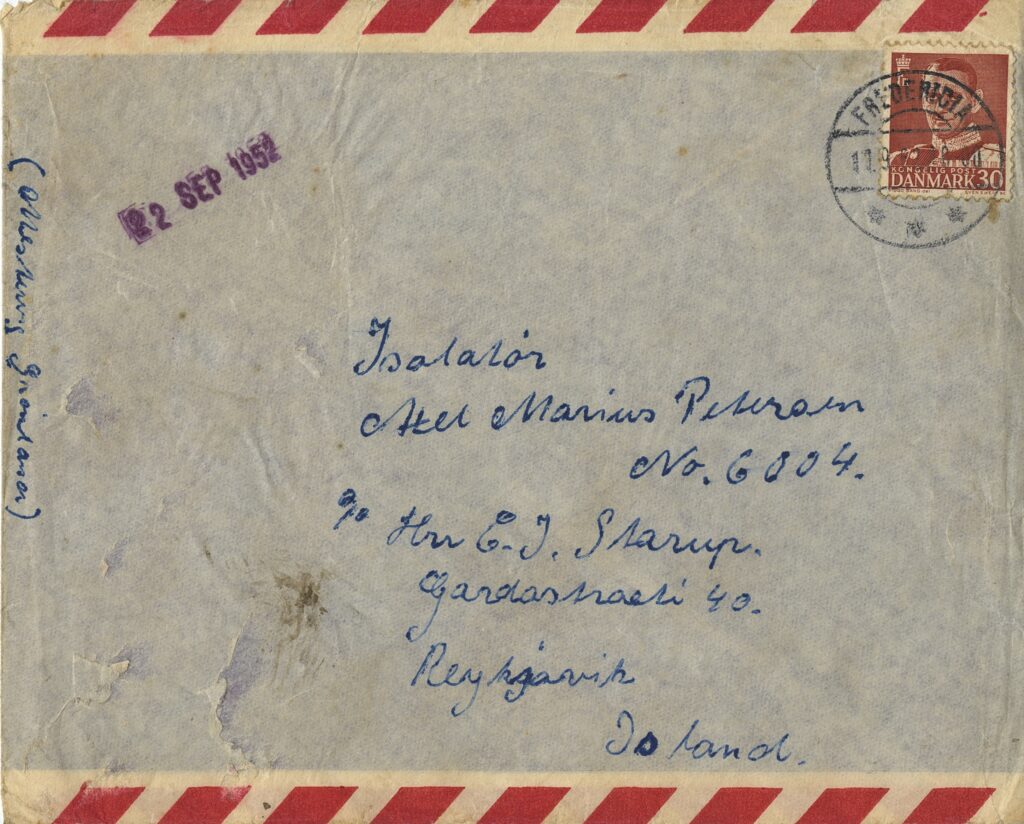 22 SEP 1952
FREDERICIA
KONGELIG POST
DANMARK 30
Isolatør
Axel Marius Petersen
No. 6004.
c/o Hrr E. J. Starup.
Gardastraeti 40.
Reykjavik
Island.